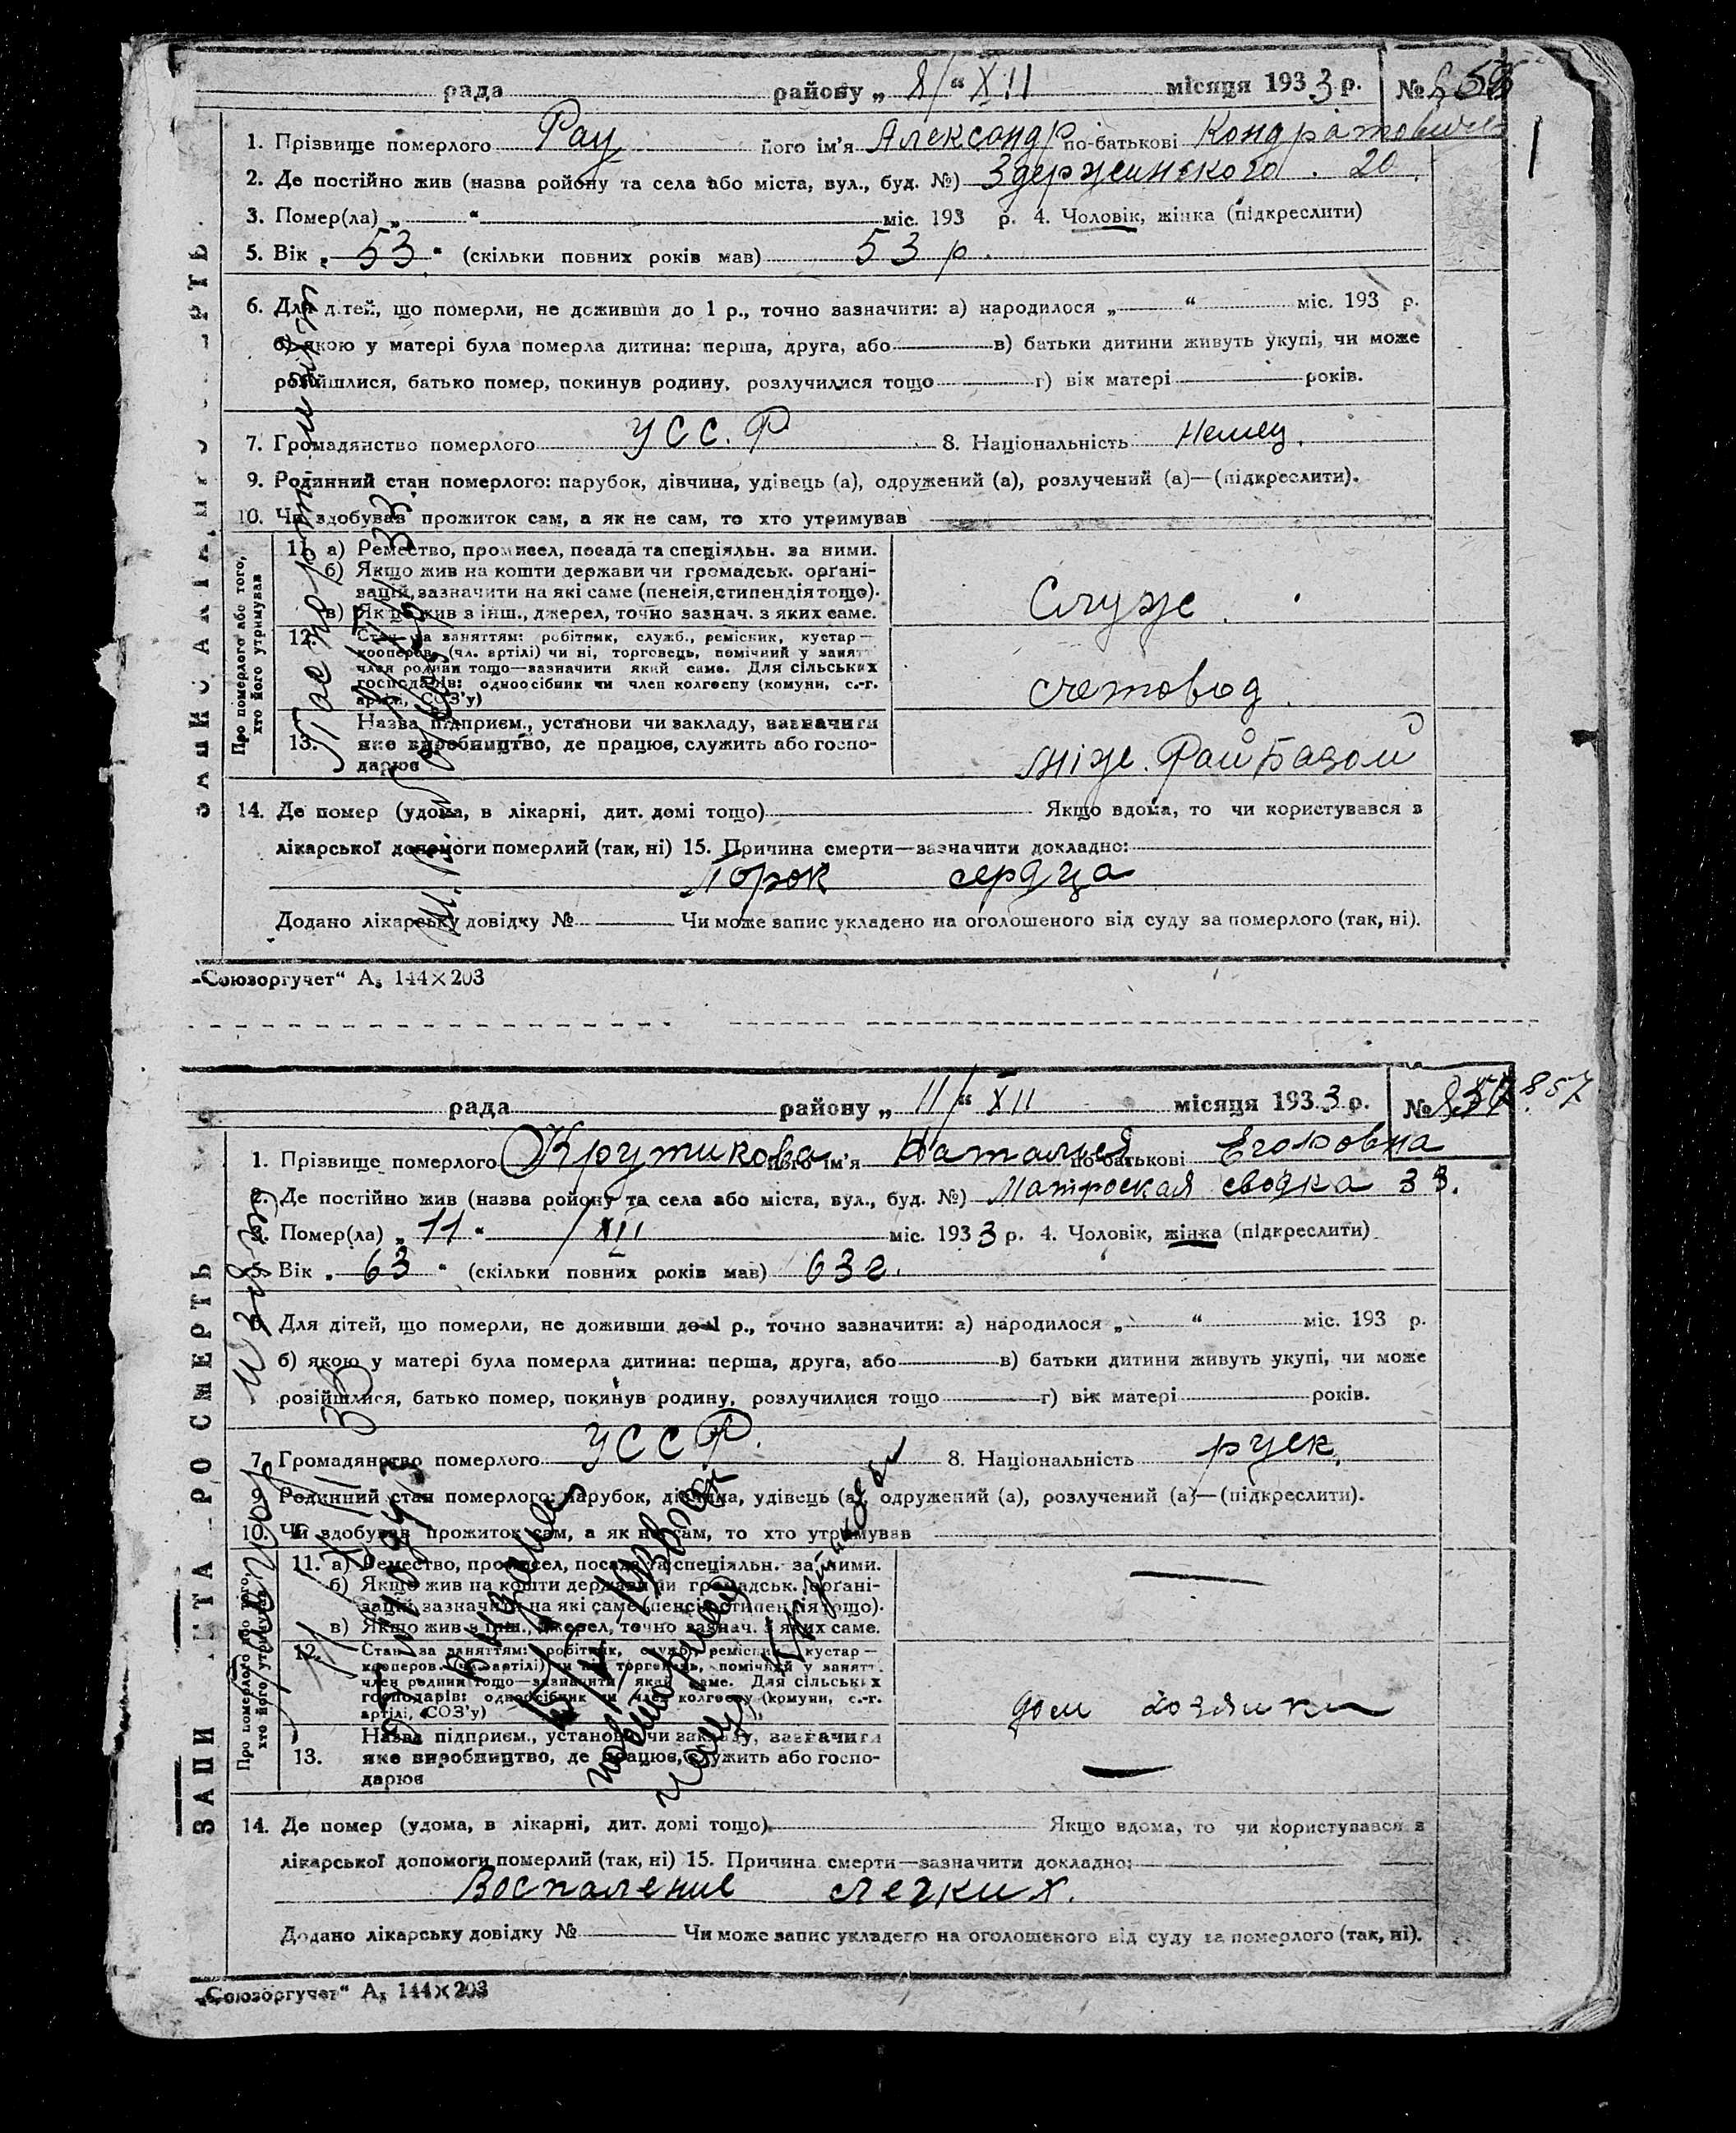 рада районy „ 8/ “ XII місяця 1933 р. №
1. Прізвище померлого Рау його ім'я Александр по-батькові Кондратович
2. Де постійно жив (назва ройону та села або міста, вул., буд. №) Здержинского . 20.
3. Помер(ла) „ “ міс. 193 р. 4. Чоловік, жінка (підкреслити)
5. Вік „ 53 “ (скільки повних років мав) 53 р.
6. Для дітей, що померли, не доживши до 1 р., точно зазначити: а) народилося „ “ міс. 193 р.
б) якою у матері була померла дитина: перша, друга, або в) батьки дитини живуть укупі, чи може
розійшлися, батько помер, покинув родину, розлучилися тощо г) вік матері років.
7. Громадянство померлого УСС.Р 8. Національність Немец.
9. Родинний стан померлого: парубок, дівчина, удівець (а), одружений (а), розлучений (а)—(підкреслити).
10. Чи здобував прожиток сам, а як не сам, то хто утримував
Про померлого або того, хто його утримував
11. а) Ремество, промисел, посада та спеціяльн. за ними.
б) Якщо жив на кошти держави чи громадськ. орґані-
зацій, зазначити на які саме (пенсія, стипендія тощо).
в) Якщо жив з інш., джерел, точно зазнач. з яких саме.
Служ.
12. Стан за заняттям: робітник, служб., ремісник, кустар—
кооперов. (чл. артілі) чи ні, торговець, помічний у занятт.
член родини тощо—зазначити який саме. Для сільських
господарів: одноосібник чи член колгоспу (комуни, с.-г.
артілі, СОЗ'у)
счетовод.
13. Назва підприєм., установи чи закладу, зазначити
яке виробництво, де працює, служить або госпо-
дарює
14. Де помер (удома, в лікарні, дит. домі тощо) Якщо вдома, то чи користувався з
лікарської допомоги померлий (так, ні) 15. Причина смерти—зазначити докладно:
Порок сердца
Додано лікарську довідку № Чи може запис укладено на оголошеного від суду за померлого (так, ні).
„Союзоргучет“ А5 144×203
рада району „ 11/ “ XII місяця 1933 р. № 857
1. Прізвище померлого Крутикова його ім'я Наталия по-батькові Егоровна
2. Де постійно жив (назва ройону та села або міста, вул., буд. №) Матроская сводка 33.
3. Помер(ла) „ 11 “ XII міс. 1933 р. 4. Чоловік, жінка (підкреслити)
5. Вік „ 63 “ (скільки повних років мав) 63 г.
6. Для дітей, що померли, не доживши до 1 р., точно зазначити: а) народилося „ “ міс. 193 р.
б) якою у матері була померла дитина: перша, друга, або в) батьки дитини живуть укупі, чи може
розійшлися, батько помер, покинув родину, розлучилися тощо г) вік матері років.
7. Громадянство померлого УССР. 8. Національність руск.
9. Родинний стан померлого: парубок, дівчина, удівець (а), одружений (а), розлучений (а)—(підкреслити).
10. Чи здобував прожиток сам, а як не сам, то хто утримував
Про померлого або того, хто його утримував
11. а) Ремество, промисел, посада та спеціяльн. за ними.
б) Якщо жив на кошти держави чи громадськ. орґані-
зацій, зазначити на які саме (пенсія, стипендія тощо).
в) Якщо жив з інш., джерел, точно зазнач. з яких саме.
12. Стан за заняттям: робітник, служб., ремісник, кустар—
кооперов. (чл. артілі) чи ні, торговець, помічний у занятт.
член родини тощо—зазначити який саме. Для сільських
господарів: одноосібник чи член колгоспу (комуни, с.-г.
артілі, СОЗ'у)
дом хозяйки
13. Назва підприєм., установи чи закладу, зазначити
яке виробництво, де працює, служить або госпо-
дарює
14. Де помер (удома, в лікарні, дит. домі тощо) Якщо вдома, то чи користувався з
лікарської допомоги померлий (так, ні) 15. Причина смерти—зазначити докладно:
Воспаление легких.
Додано лікарську довідку № Чи може запис укладено на оголошеного від суду за померлого (так, ні).
„Союзоргучет“ А5 144×203